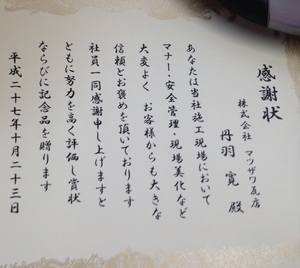 感謝状
株式会社 マツザワ瓦店
丹羽 寛 殿
あなたは当社施工現場において
マナー・安全管理・現場美化など
大変よく お客様からも大きな
信頼とお褒めを頂いております
社員一同感謝申し上げますと
ともに努力を高く評価し賞状
ならびに記念品を贈ります
平成二十七年十月二十三日